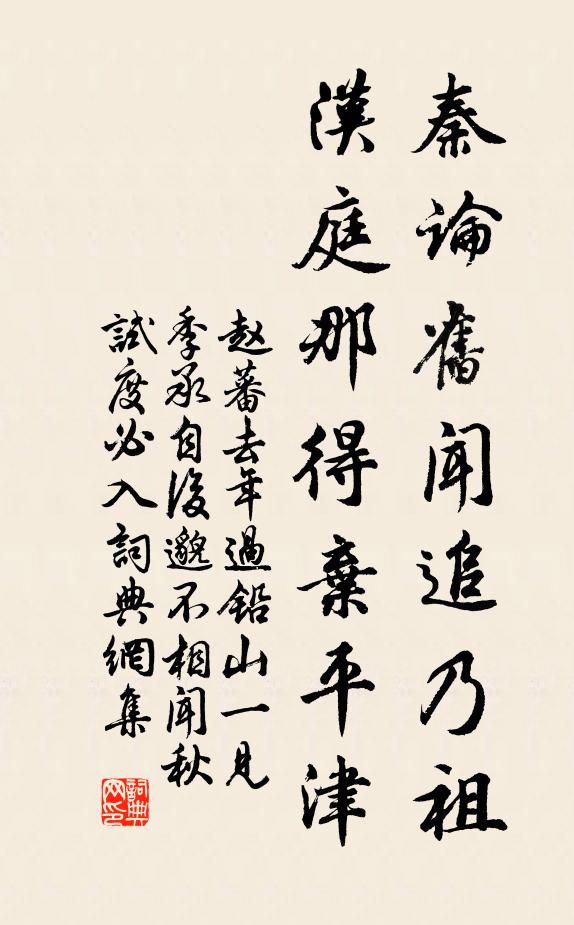 秦論舊聞追乃祖
漢庭那得棄平津
赵蕃去年過鉛山一見
季承自後邈不相聞秋
試度必入詞典網集
詞典网印